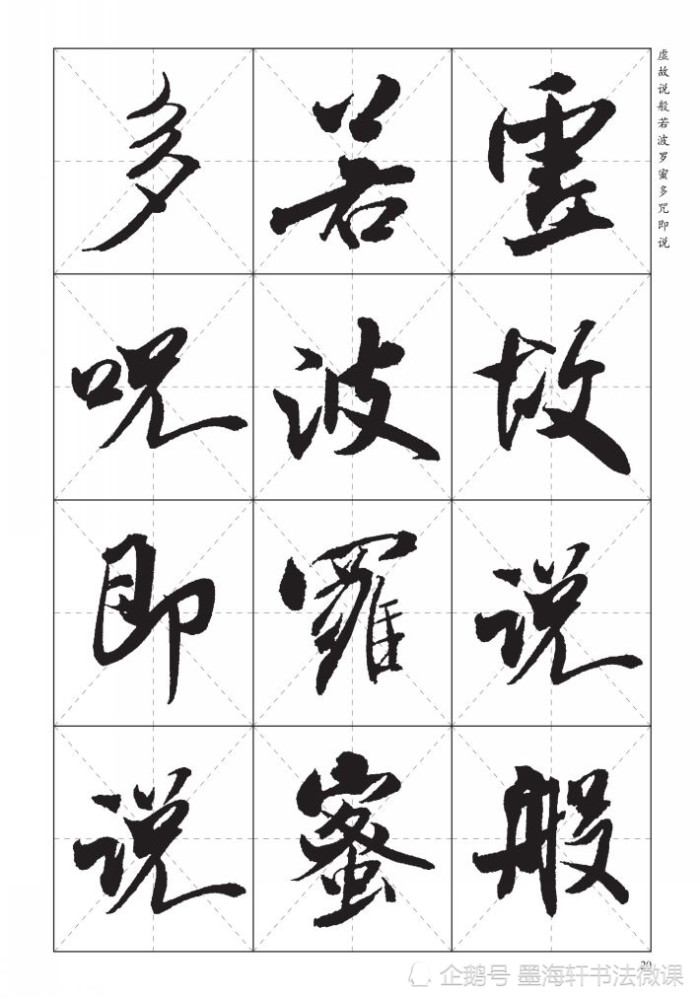 虚故说般若波罗蜜多咒即说
虚故说般
若波羅蜜
多呪即说
20
企鹅号 墨海轩书法微课